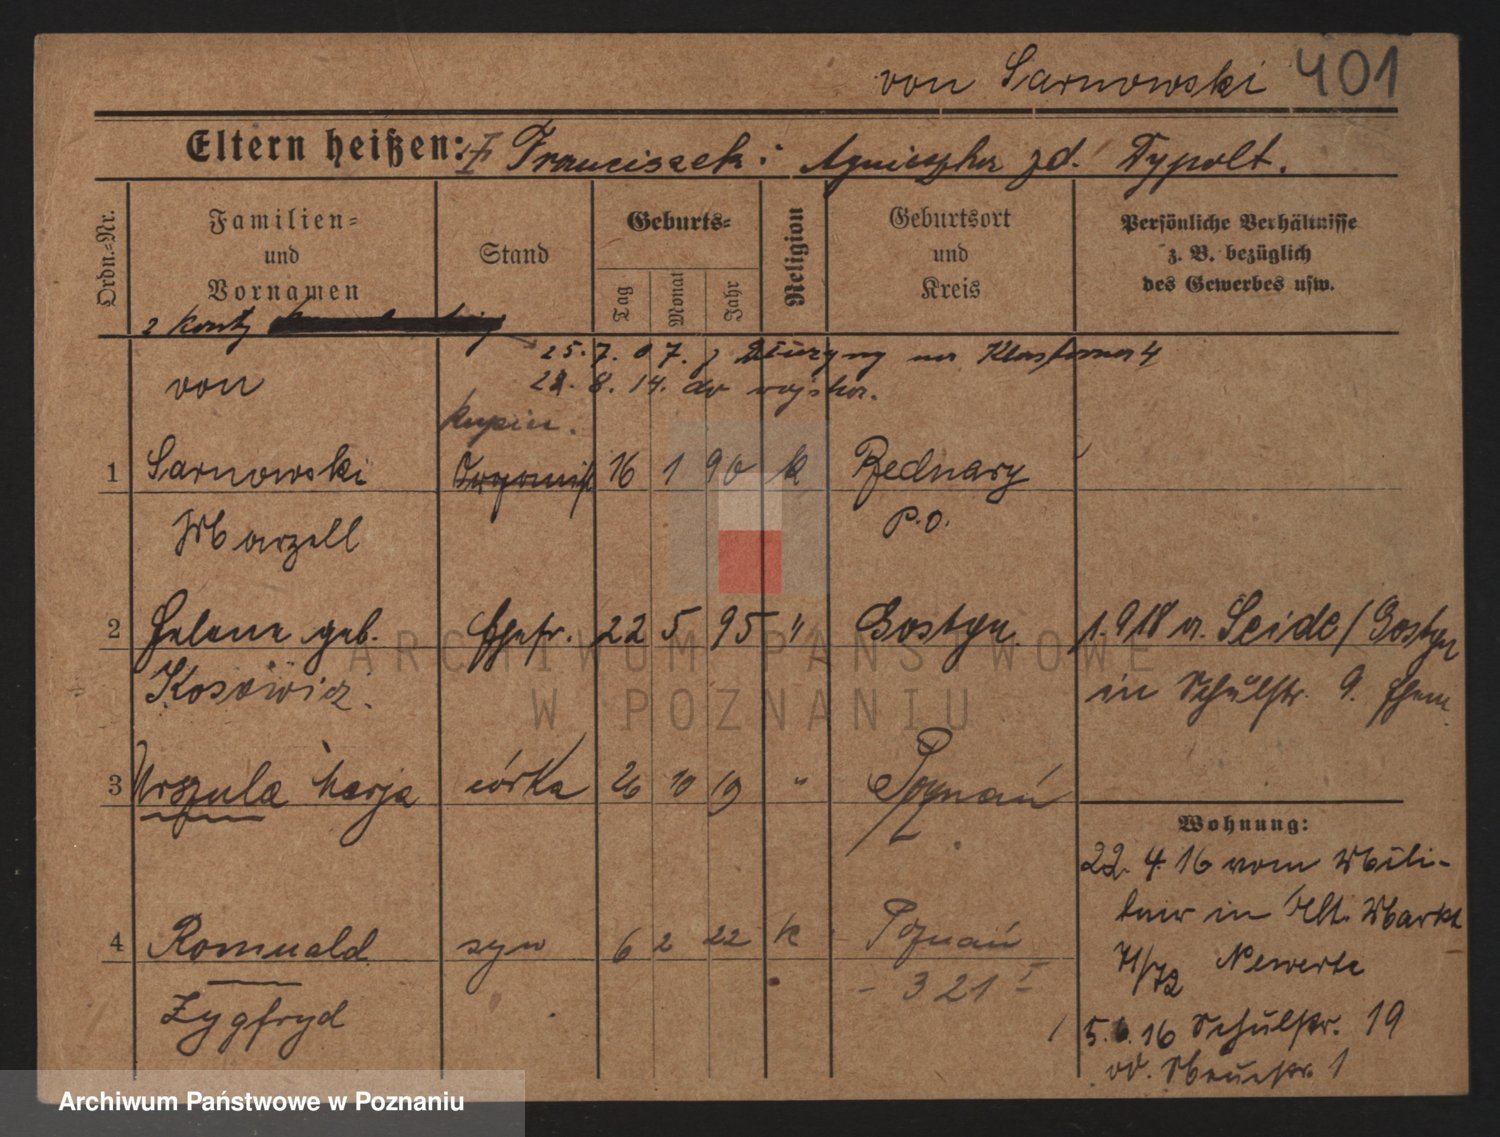 von Sarnowski 401
Eltern heißen: Franciszek i Agnieszka zd. Typolt.
Ordn.-Nr.
Familien-
und
Vornamen
Stand
Geburts-
Tag
Monat
Jahr
Religion
Geburtsort
und
Kreis
Persönliche Verhältnisse
z. B. bezüglich
des Gewerbes usw.
2 Konty
25. 7. 07. z na Klasztorna 4
von 28. 8. 14. do wojska.
kupiec.
1 Sarnowski Organist 16 1 90 k Bednary
Marzell P.O.
2 Helene geb. Ehefr. 22 5 95 " Gostyn 1.918 a. Seide / Gostyn
in Schulstr. 9. Ehem.
3 Urszula Marja córka 26 10 19 " Poznań
Wohnung:
22. 4. 16 vom Mili-
tair in Alt. Markt
71/72
4 Romuald syn 6 2 22 k Poznań
- 321 I
Zygfryd
5. 6. 16 Schulstr. 19
1
ARCHIWUM PAŃSTWOWE
W POZNANIU
Archiwum Państwowe w Poznaniu